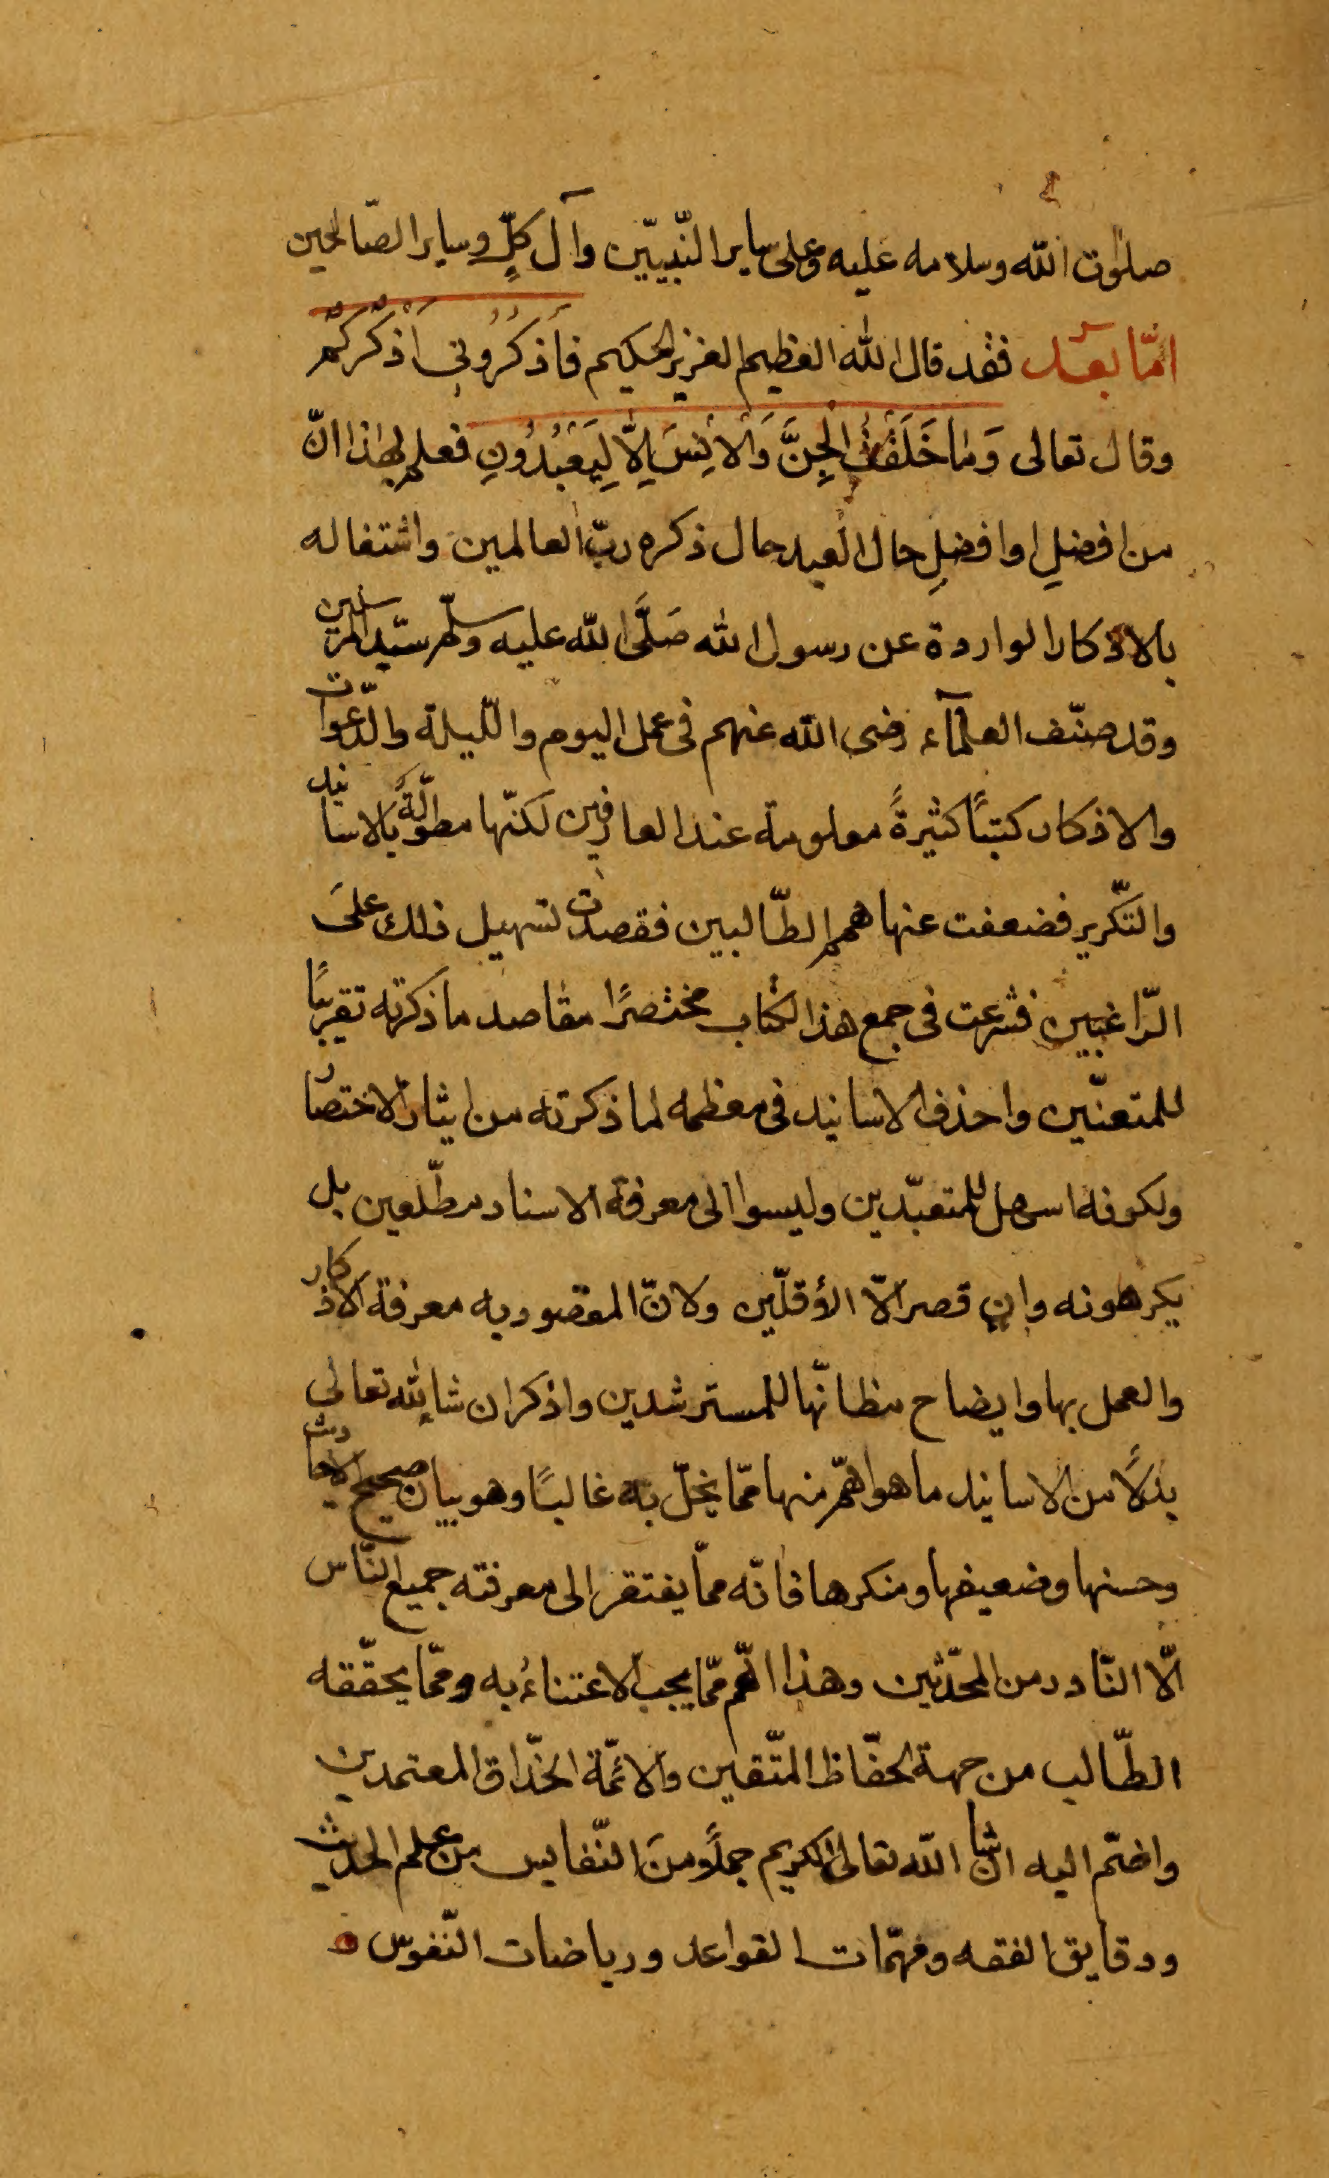 صلوٰت الله وسلامه عليه وعلى ساير النّبيّين وآل كلٍّ وساير الصّالحين
امّا بعد فقد قال الله العظيم العزيز الحكيم فَاذكُرُوني اَذْكُرْكُمْ
وقال تعالى وَمٰا خَلَقْتُ الْجِنَّ وَالْاِنْسَ اِلاّٰ لِيَعْبُدُونِ فعلم بهٰذا انّ
من افضلِ او افضلِ حال العبد حال ذكره ربّ العالمين واشتغاله
بالاذكار الواردة عن رسول الله صَلَّى الله عليه وسلّم سيّد المرسلين
وقد صنّف العلمآء رضى الله عنهم فى عمل اليوم واللّيلة والدّعوات
والاذكار كتبًا كثيرةً معلومة عند العارفين لكنّها مطوّلةً بالاسانيد
والتّكرير فضعفت عنها همم الطّالبين فقصدت تسهيل ذلك على
الرّاغبين فشرعت فى جمع هذا الكتاب مختصرًا مقاصد ما ذكرته تقريبًا
للمتعنّين واحذف الاسانيد فى معظمه لما ذكرته من ايثار الاختصار
ولكونه اسهل للمتعبّدين وليسوا الى معرفة الاسناد مطّلعين بل
يكرهونه وان قصر الّا الأقلّين ولانّ المقصود به معرفة الاذكار
والعمل بها وايضاح مظانّها للمسترشدين واذكر ان شا الله تعالى
بدلاً من الاسانيد ما هو اهمّ منها ممّا يخلّ به غالبًا وهو بيان صحيح الاحاديث
وحسنها وضعيفها ومنكرها فانّه ممّا يفتقر الى معرفته جميع النّاس
الّا النّادر من المحدّثين وهذا اهمّ ممّا يجب الاعتناءُ به وممّا يحقّقه
الطّالب من جهة الحفّاظ المتّقين والائمّة الحذّاق المعتمدين
واضمّ اليه ان شا الله تعالى الكريم جملاً منَ النّفايس من علم الحديث
ودقايق الفقه ومهمّات القواعد ورياضات النّفوس